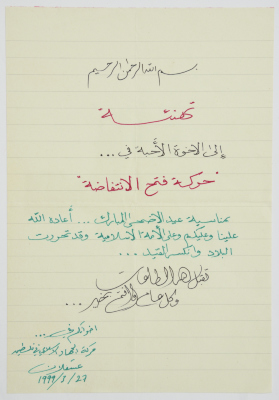 بسم الله الرحمن الرحيم
تهنئة
إلى الاخوة الأحبة في ...
"حركة فتح الانتفاضة"
بمناسبة عيد الأضحى المبارك ... أعاده الله
علينا وعليكم وعلى الأمة الاسلامية وقد تحررت
البلاد وانكسر القيد ...
تقبل الله الطاعات
وكل عام وأنتم بخير ...
اخوانكم في ...
حركة الجهاد الاسلامي في فلسطين
عسقلان